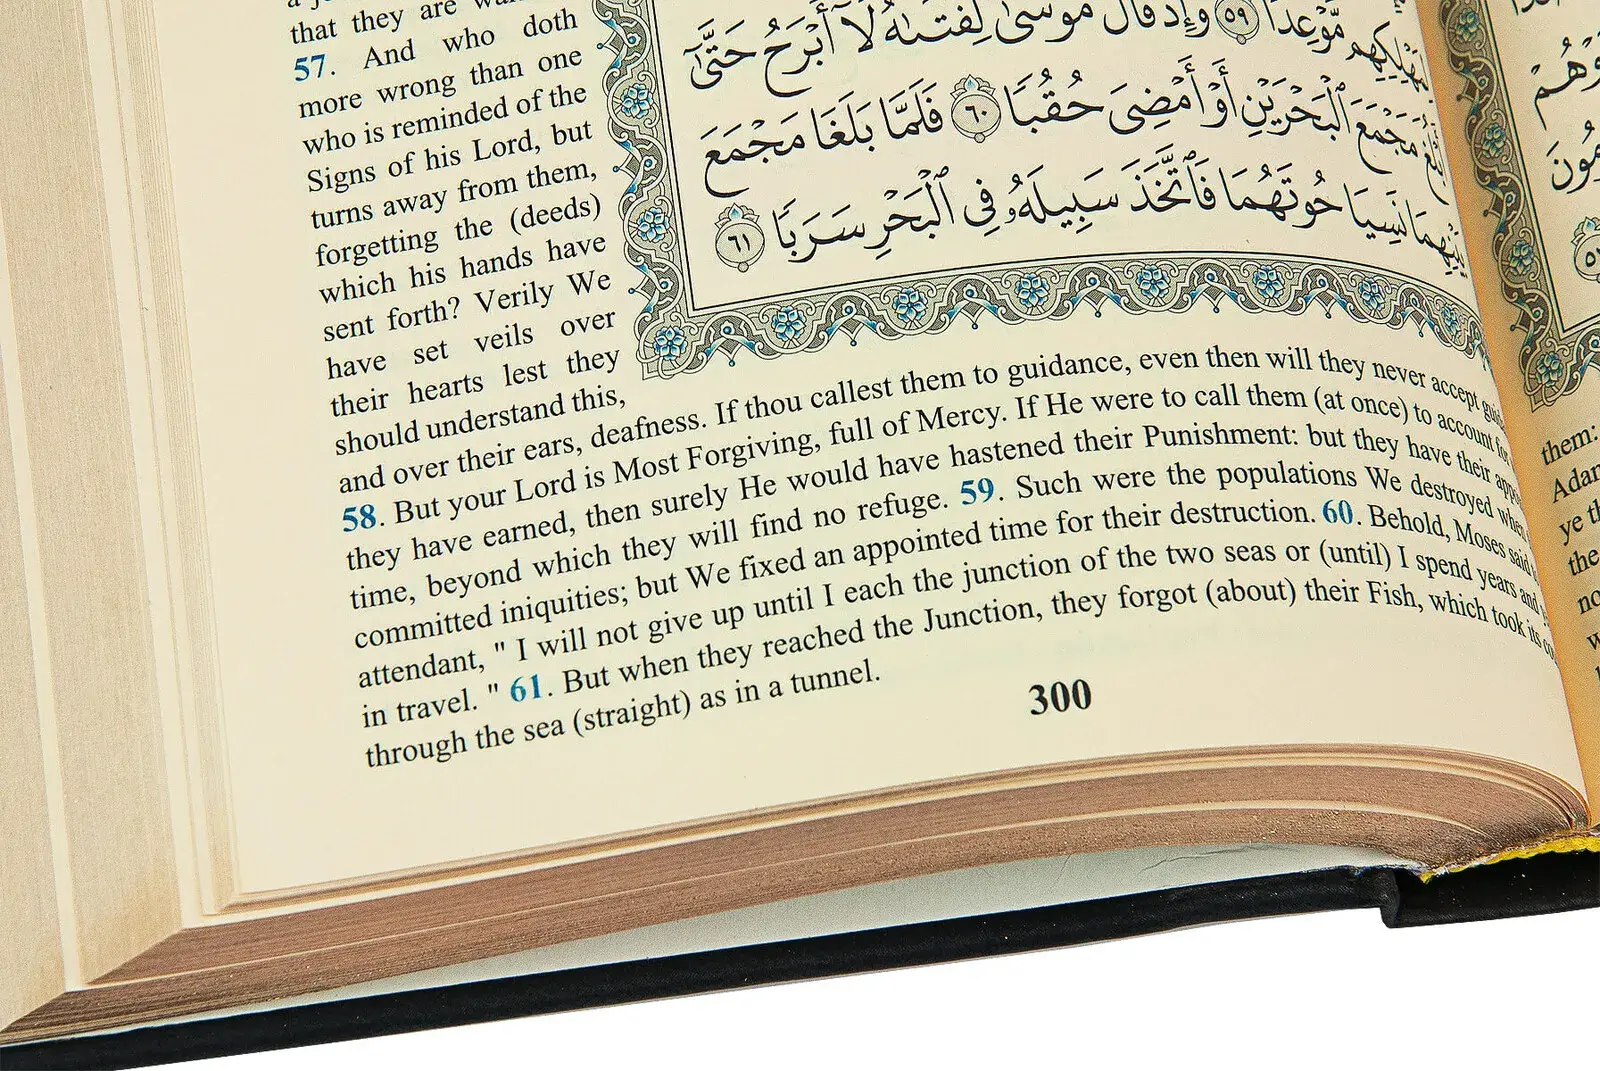 مَّوْعِدًا ٥٩ وَإِذْ قَالَ مُوسَىٰ لِفَتَىٰهُ لَآ أَبْرَحُ حَتَّىٰٓ
أَبْلُغَ مَجْمَعَ ٱلْبَحْرَيْنِ أَوْ أَمْضِىَ حُقُبًا ٦٠ فَلَمَّا بَلَغَا مَجْمَعَ
بَيْنِهِمَا نَسِيَا حُوتَهُمَا فَٱتَّخَذَ سَبِيلَهُۥ فِى ٱلْبَحْرِ سَرَبًا ٦١
that they are
57. And who doth
more wrong than one
who is reminded of the
Signs of his Lord, but
turns away from them,
forgetting the (deeds)
which his hands have
sent forth? Verily We
have set veils over
their hearts lest they
should understand this,
and over their ears, deafness. If thou callest them to guidance, even then will they never accept
58. But your Lord is Most Forgiving, full of Mercy. If He were to call them (at once) to account for
they have earned, then surely He would have hastened their Punishment: but they have their
time, beyond which they will find no refuge. 59. Such were the populations We destroyed when
committed iniquities; but We fixed an appointed time for their destruction. 60. Behold, Moses said
attendant, " I will not give up until I each the junction of the two seas or (until) I spend years and
in travel. " 61. But when they reached the Junction, they forgot (about) their Fish, which took its
through the sea (straight) as in a tunnel.
300
them:
ye
the